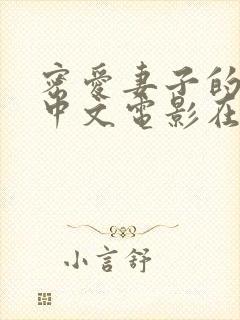 密爱妻子的
中文电影在
小言舒